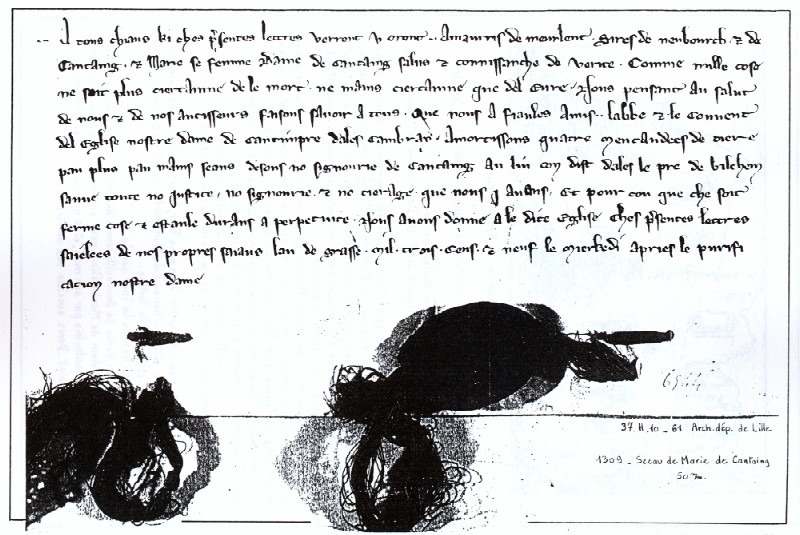 A tous chiaus ki ches p̄sentes lettres verront v oront · Amaurris de meullent · Sires de neubourch · ⁊ de
Cantaing · ⁊ Marie se femme Dame de Cantaing salus ⁊ connissanche de verite · Comme nulle cose
ne soit plus ciertainne de le mort · ne mains ciertainne que del eure · Nous pensant au salut
de nous ⁊ de nos ancisseurs faisons savoir a tous · Que nous a fiaules amis · labbe ⁊ le couvent
del Eglise nostre dame de Cantimpre dales Cambray · Amortissons quatre mencaudees de tierre
pau plus pau mains seans desous no signourie de Cantaing Au liu con dist dales le pre de
sauve toute no justice · no signourie · ⁊ no tierage que nous j avans · Et pour cou que che soit
ferme cose ⁊ estaule durans a perpetuite · Nous avons donne a le dite Eglise Ches p̄sentes lettres
saielees de nos propres saiaus lan de grasse · mil · trois · Cens · ⁊ neuf le mierkedi apries le purifi
cation nostre dame
6944
37 H.10 _ 61 Arch.dép. de Lille
1309 _ Sceau de Marie de Cantaing